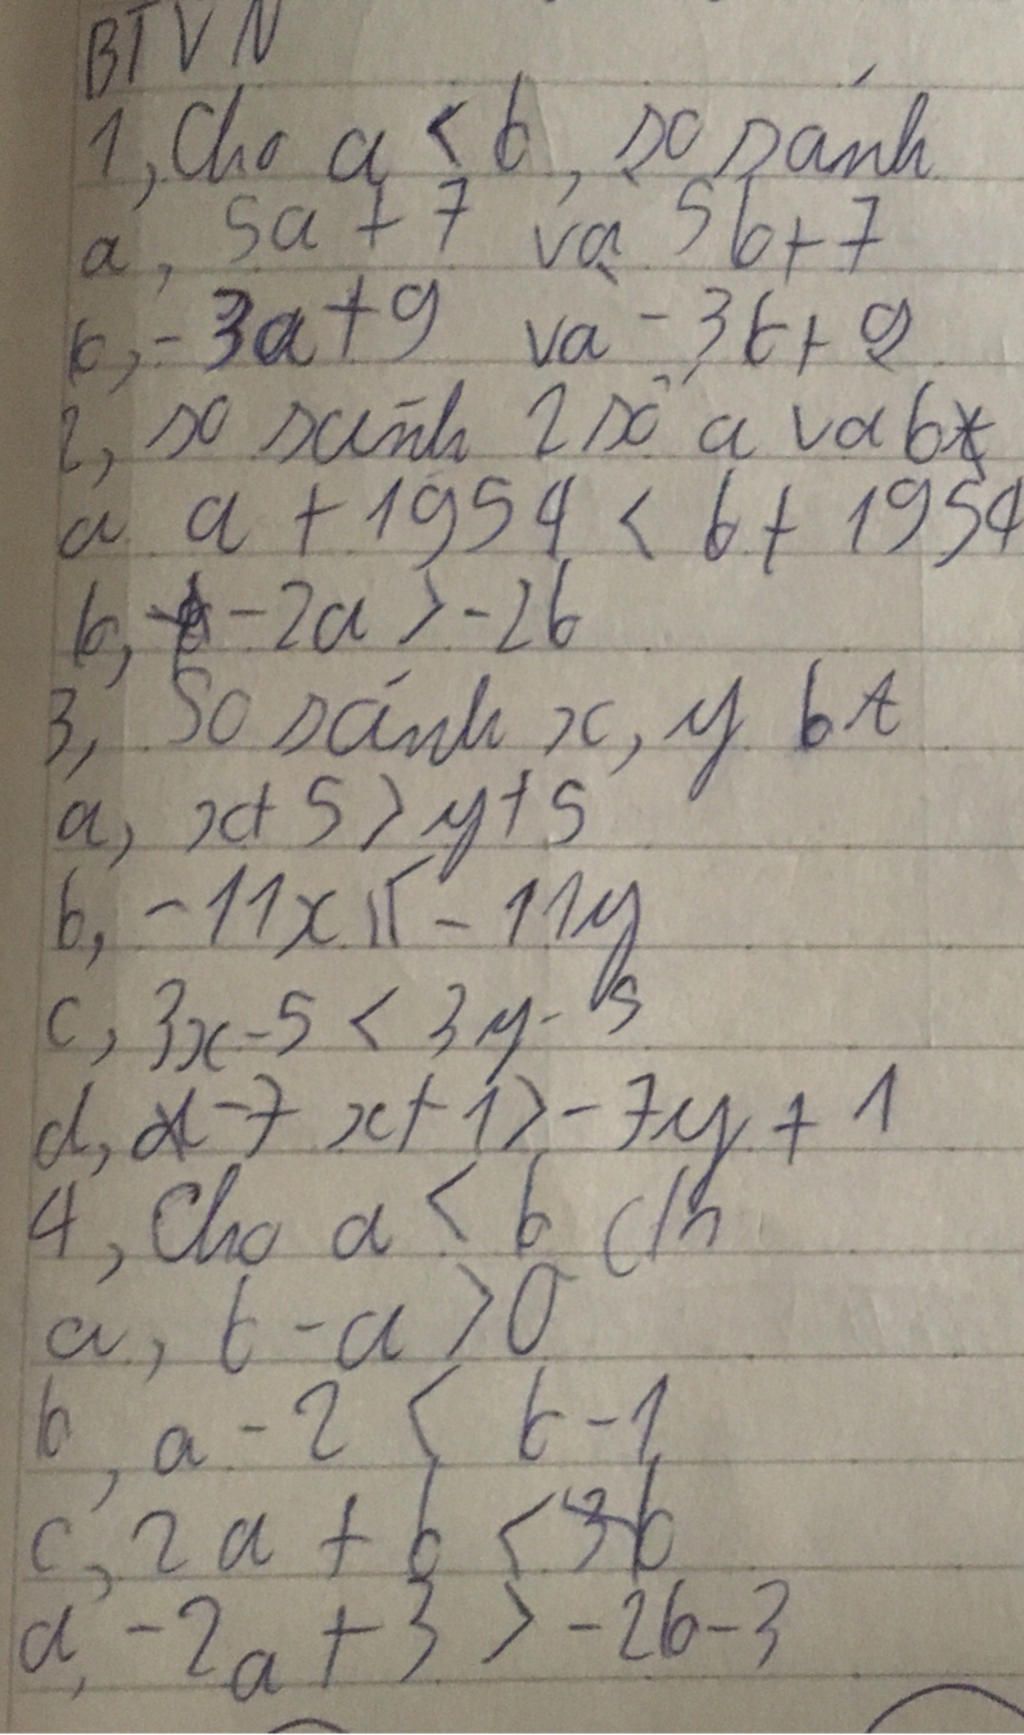 BTVN
1, Cho a < b, so sánh
a, 5a + 7 và 5b + 7
b, -3a + 9 va -3b + 9
2, so sánh 2 số a va b
a a + 1954 < b + 1954
b, -2a > -2b
3, So sánh x, y bt
a, x + 5 > y + 5
b, -11x - 11y
c, 3x - 5 < 3y - 5
d, -7x + 1 > -7y + 1
4, Cho a < b c/m
a, b - a > 0
b, a - 2 < b - 1
c, 2a + b < 3b
d, -2a + 3 > -2b - 3